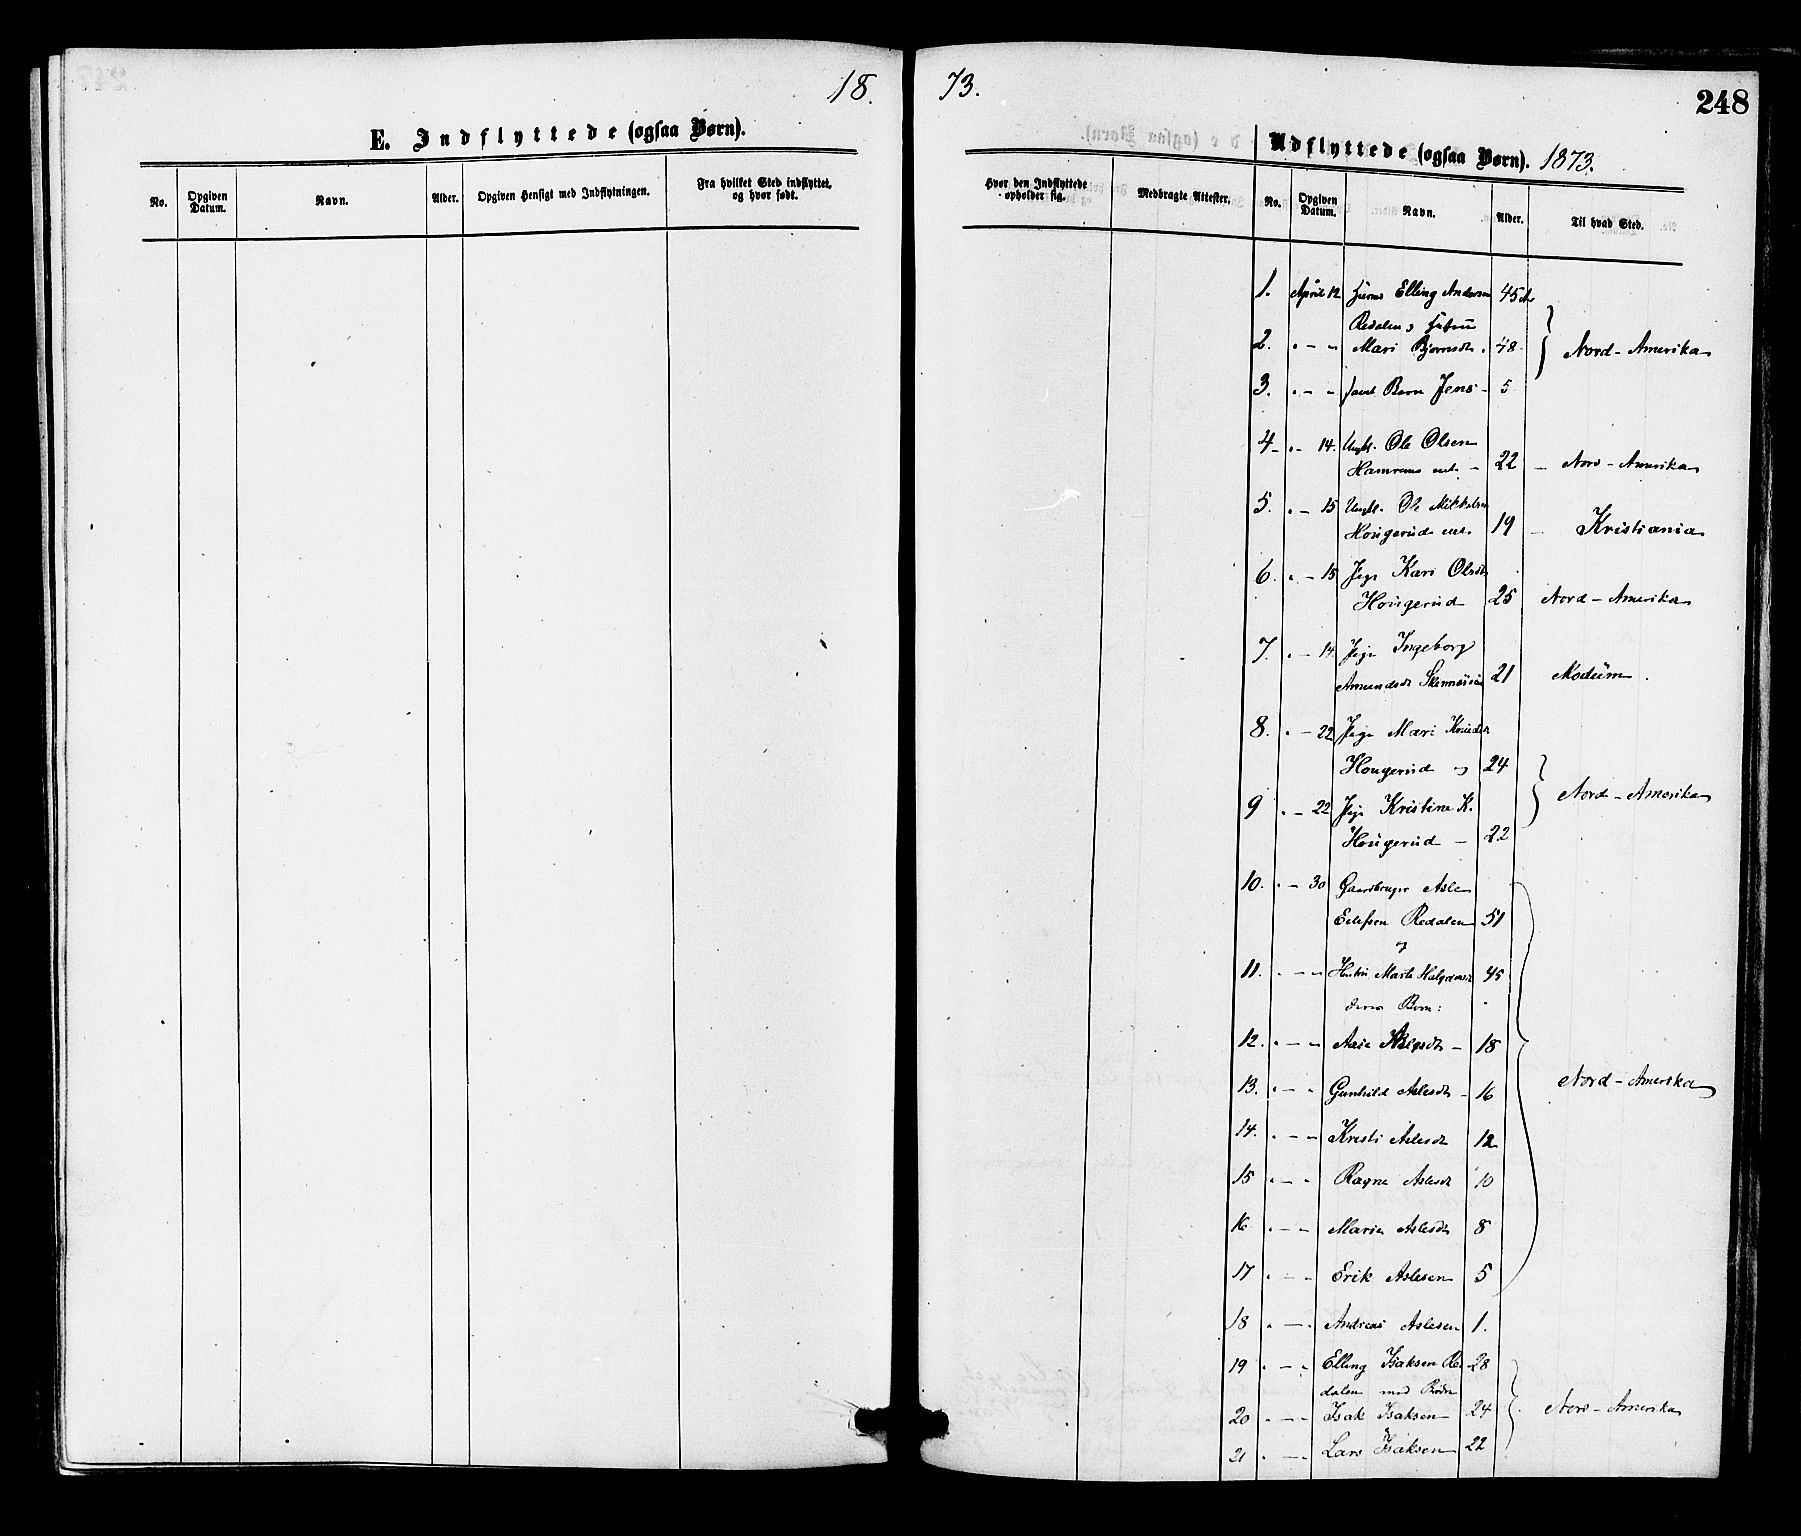 18.
E. Indflyttede (ogsaa Børn).
No. Opgiven Datum. Navn. Alder. Opgiven Hensigt med Indflytningen. Fra hvilket Sted indflyttet, og hvor født.
73.
248
Udflyttede (ogsaa Børn). 1873.
Hvor den Indflyttede opholder sig. Medbragte Attester. No. Opgiven Datum. Navn. Alder. Til hvad Sted.
1. April 12 Elling Andersen 45 Ar
Redalen
2. " — " Mari Bjørnsdt. 48 Nord-Amerika
3. " — " Barn Jens — 5
4 — " — 14. Ungk. Ole Olsen
22 — Nord-Amerika
5. " — 15 Ungk. Ole Mikkelsen
Hougerud 19 — Kristiania
6. " — 15 Pige Kari Olsdt
Hougerud 25 Nord-Amerika
7. " — 14. Pige Ingeborg
Amundsdt 21 Modum
8. " — 22 Pige Mari Knudsdt
Hougerud og 24
Nord-Amerika
9 " — 22 Pige Kristine K.
Hougerud — 22
10. " — 30 Gaardbruger Asle
Redalen 51
og
11. " — " Hustru Marte Halgrimsdt 45
deres Børn:
12. " — " 18
13. " — " Gunhild Aslesdt — 16 Nord-Amerika
14. " — " Kristi Aslesdt 12
15 " — " Ragne Aslesdt 10
16 " — " Marie Aslesdt 8
17 " — " Erik Aslesen 5
18 " — " Andreas Aslesen 1.
19 " — " Elling Isaksen Re- 28
dalen med Brødre
20 " — " Isak Isaksen 24 Nord-Amerika
21 " — " Lars Isaksen 22